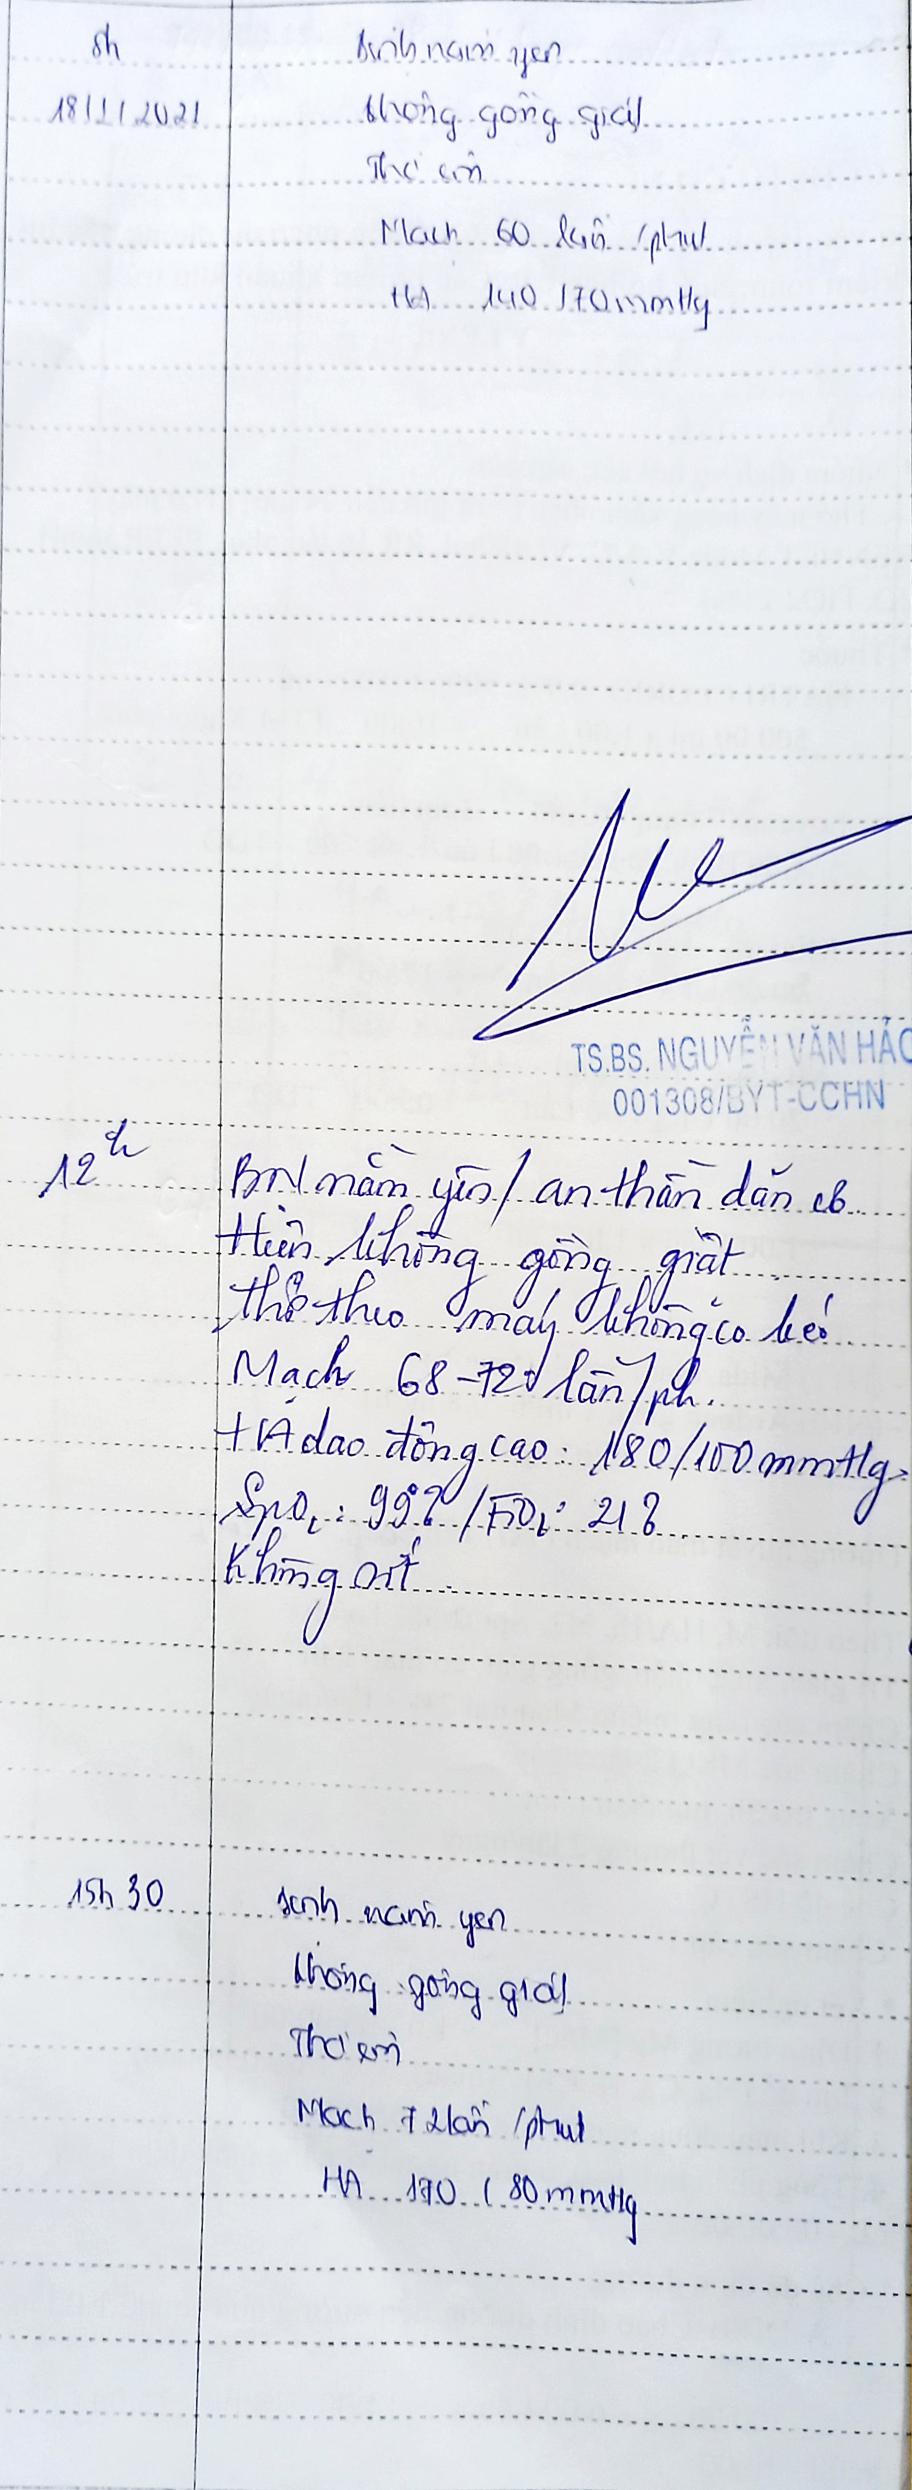 5h
bệnh nằm yên
18/1/2021
không gồng giật
Thở êm
Mạch 60 lần /phút
HA 140 /70mmHg
TS.BS. NGUYỄN VĂN HẢO
001308/BYT-CCHN
12h
BN nằm yên / an thần dãn cơ
Hiện không gồng giật
thở theo máy không co kéo
Mạch 68-72 lần/ph.
HA dao động cao: 180/100 mmHg
SpO2: 99% / FiO2: 21%
Không sốt
15h30
bệnh nằm yên
không gồng giật
Thở êm
Mạch 72 lần /phút
HA 170 / 80mmHg